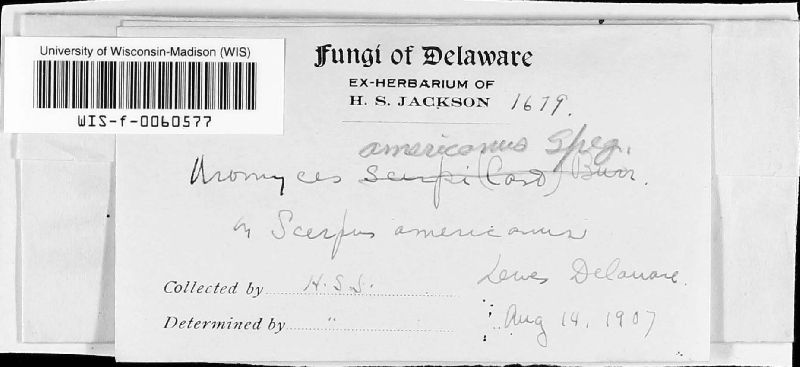 University of Wisconsin-Madison (WIS)
WIS-f-0060577
Fungi of Delaware
EX-HERBARIUM OF
H. S. JACKSON 1679.
americanus Speg.
Uromyces Scirpi (Cast) Burr.
on Scirpus americanus
Lewes Delaware.
Collected by H.S.J.
Determined by "
Aug 14, 1907